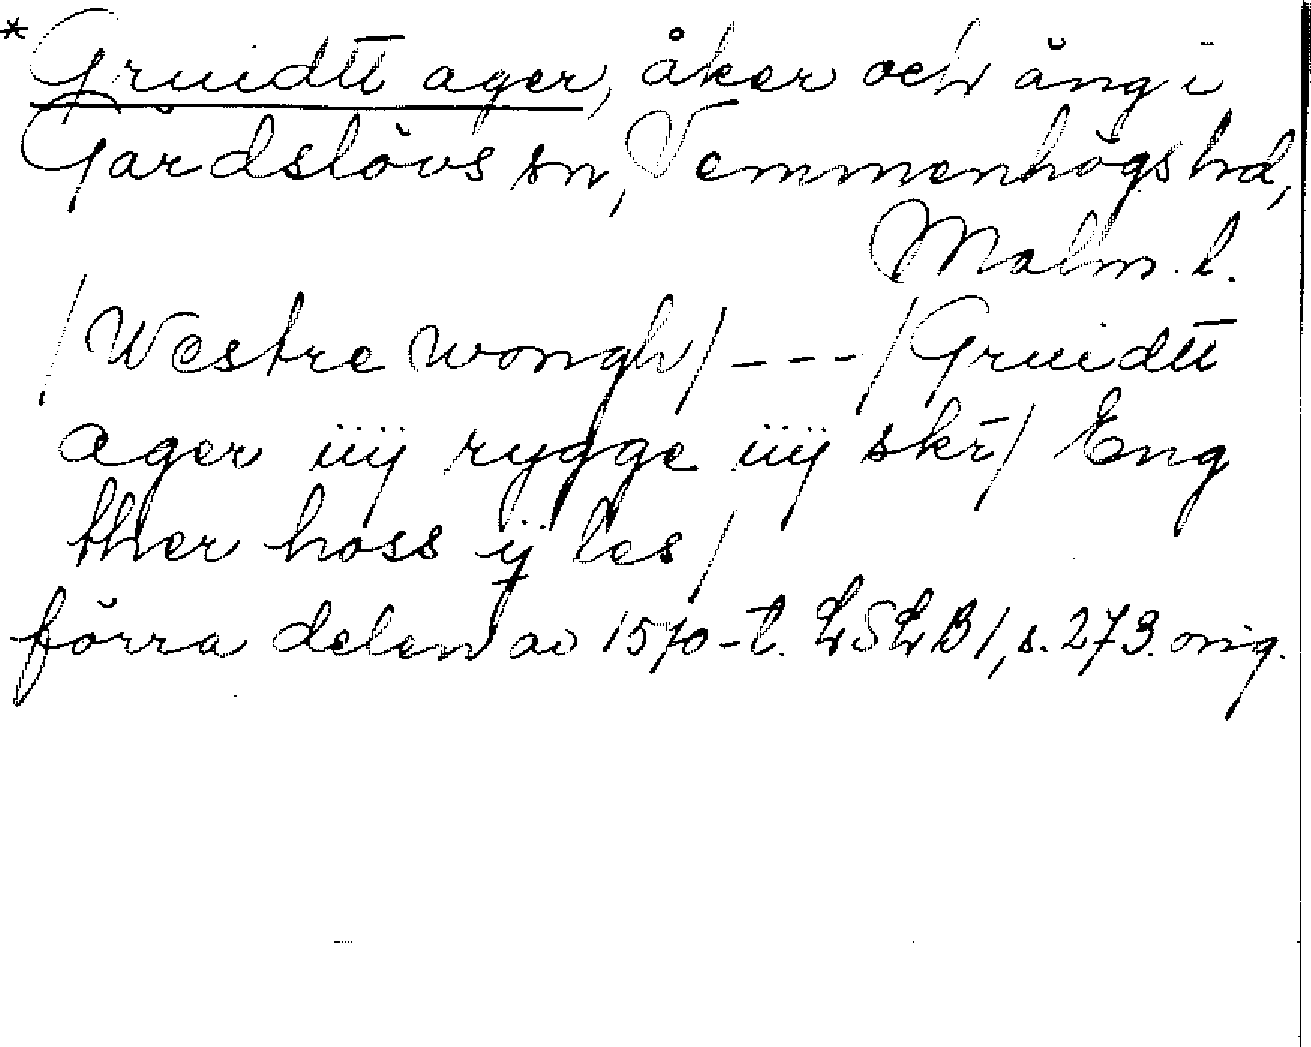 *Gruidtt ager, åker och äng i
Gärdslövs sn, Vemmenhögs hd,
Malm. l.
/Westre wongh/ - - - /Gruidtt
ager iiij rygge iiij skr̄/ Eng
ther hoss ij les/
förra delen av 1570-t. LSLB1, s. 273. orig.